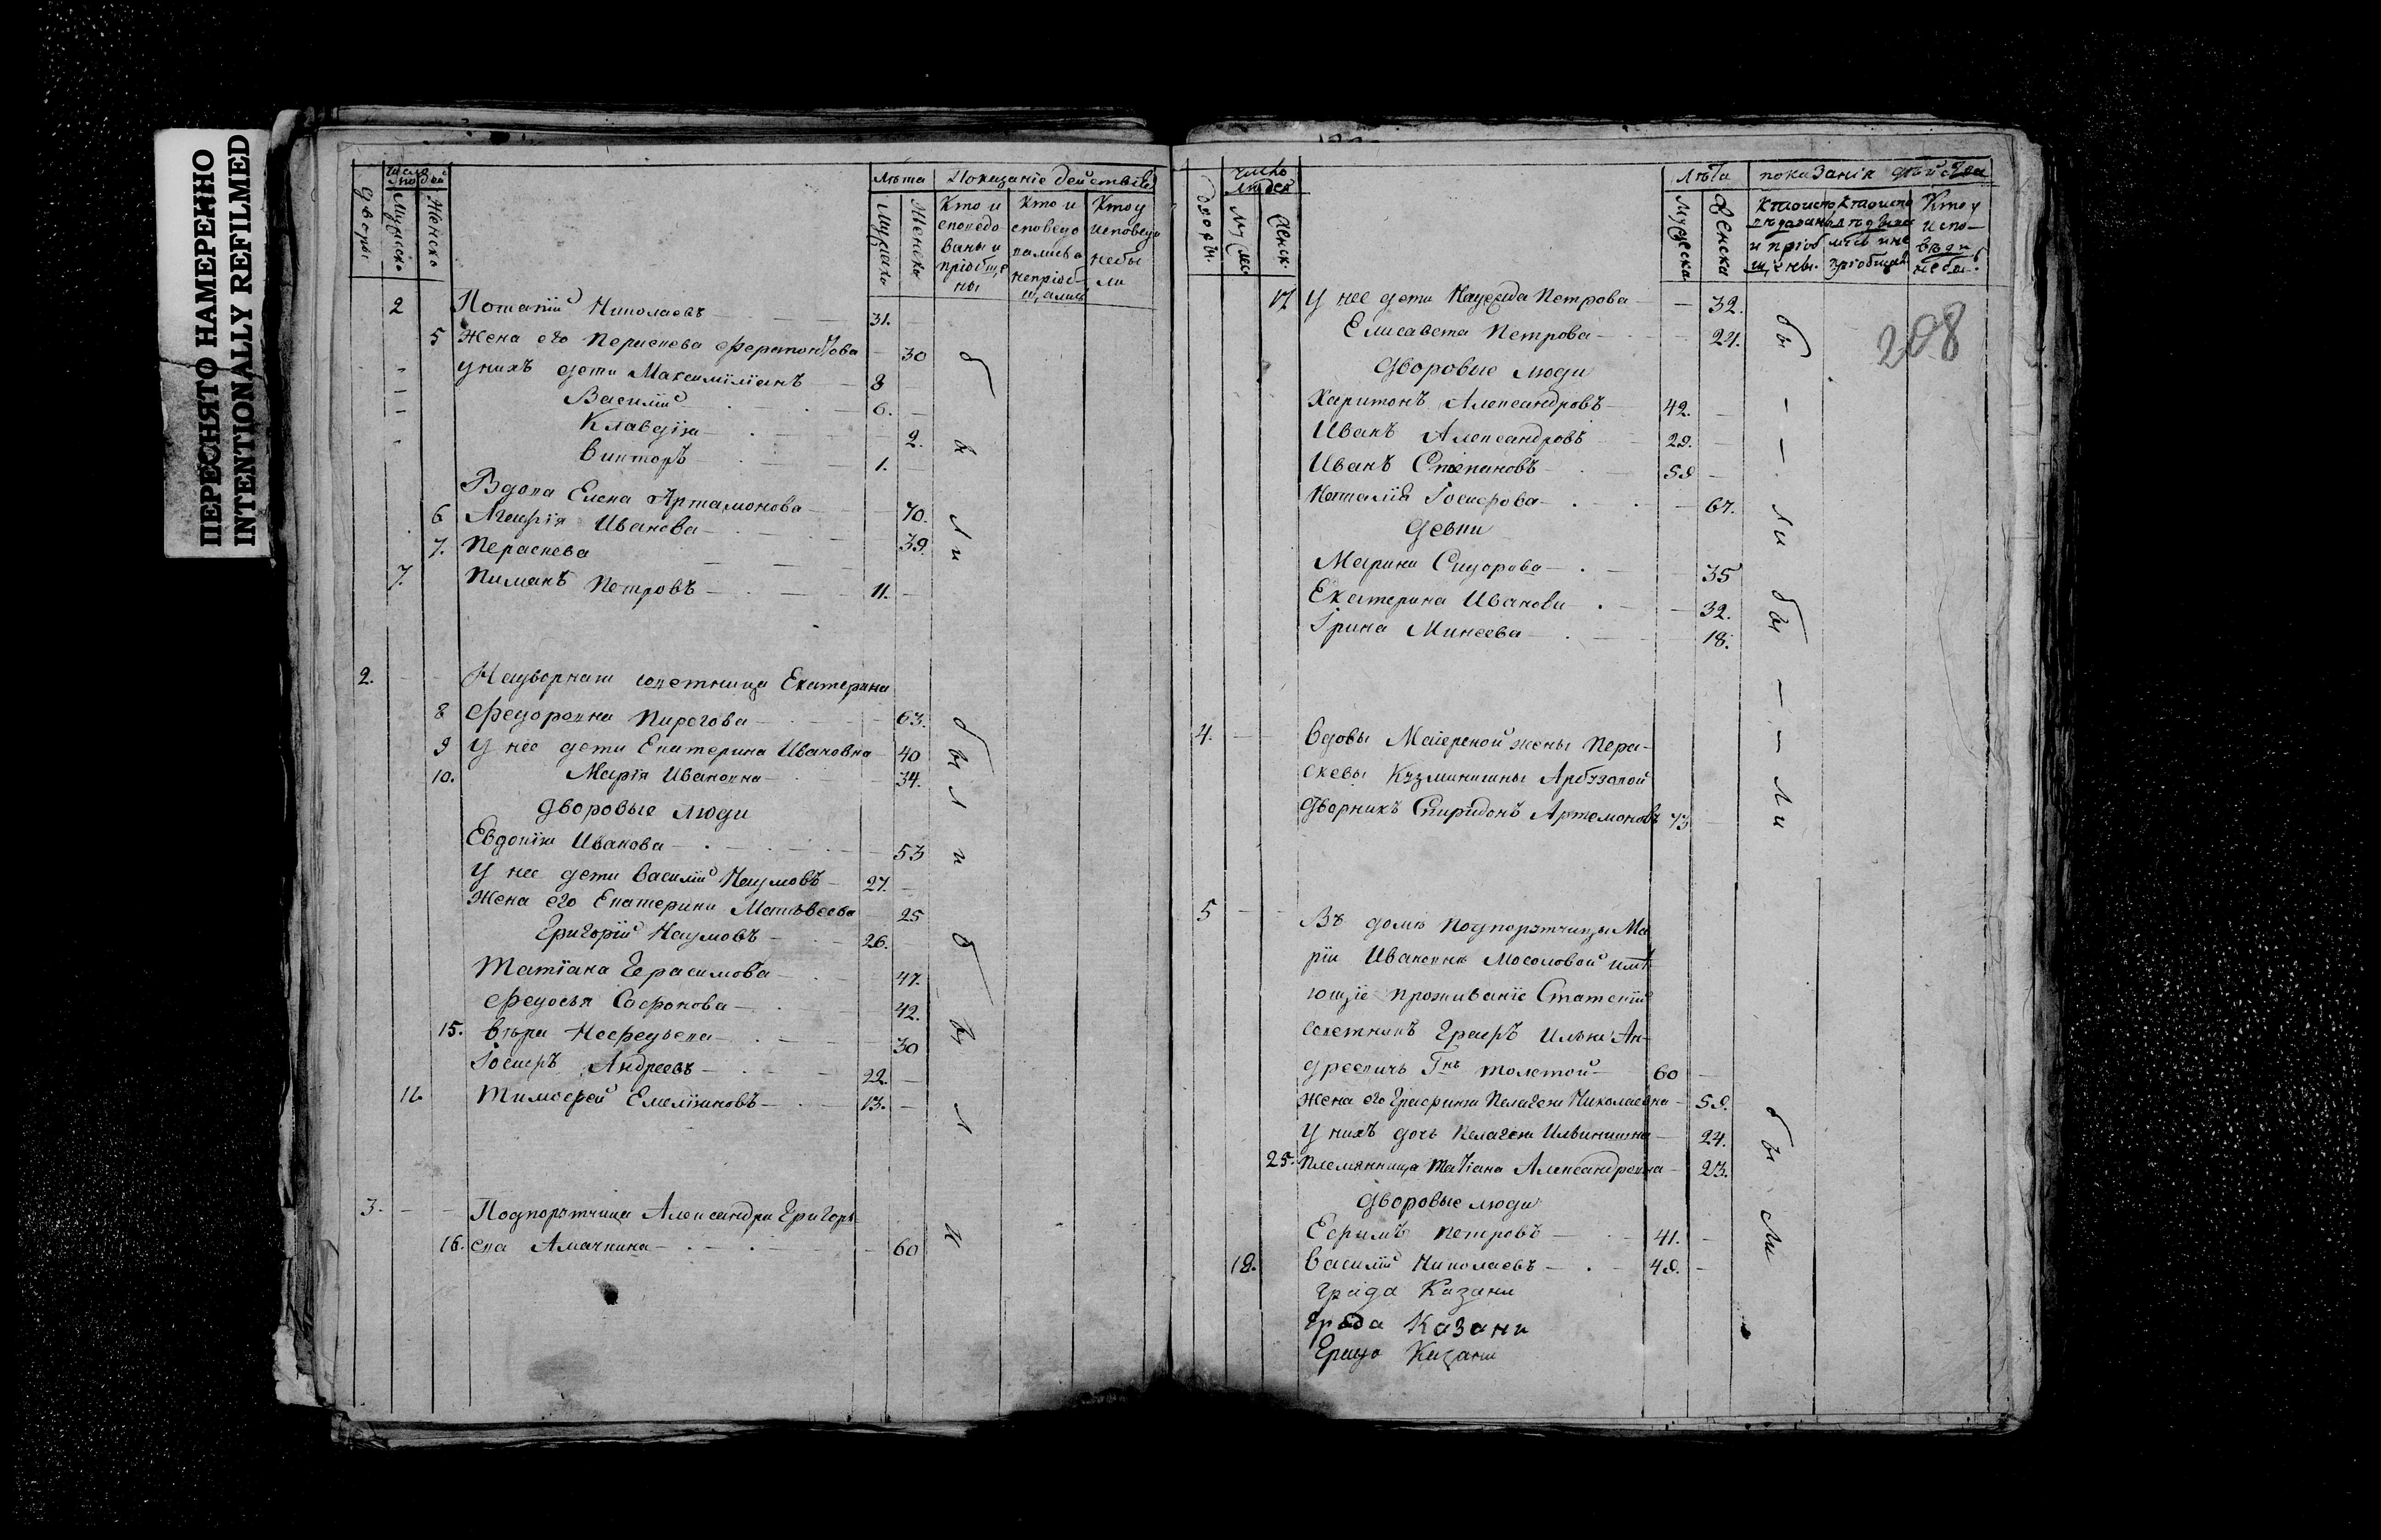 ПЕРЕСНЯТО НАМЕРЕННО
INTENTIONALLY REFILMED
Число людей
Лѣта Показаніе действiй
Дворы
Мужеско
Женско
Мужеско
Женска
Кто и
споведо
ваны и
пріобще
ны
Кто и
споведо
вались а
непріоб-
щались
Кто у
исповеди
небы
ли
2 Потапій Николаевъ 31.
5 Жена его Параскева 30
у нихъ дети Максимиліанъ 8
Василій 6.
Клавдія 2.
Викторъ 1.
Вдова Елена Артамонова 70.
6 Агафія Иванова 39.
7. Параскева
7. Пиманъ Петровъ 11.
были
2. Надворная советница Екатерина
8 Федоровна Пирогова 63.
9 У нее дети Екатерина Ивановна 40
10. Марія Ивановна 34.
Дворовые люди
Евдокія Иванова 53
У нее дети Василій Наумовъ 27.
Жена его Екатерина Матвѣева 25
Григорій Наумовъ 26.
Татіана Герасимова 47.
Федосья Софронова 42.
15. Вѣра Мефедьева 30
Іосифъ Андреевъ 22.
Тимофей Емеліановъ 13.
были
были
3. Подпорутчица Александра Григорь-
16. ева Амачкина 60
Число
людей
Лѣта показаніи дѣйства
Дворы.
Женск.
Мужеска
Женска
Кто у
испо-
веди
небы.
208
17 У нее дети Надежда Петрова 32.
Елисавета Петрова 24.
Дворовые люди
Харитонъ Александровъ 42.
Иванъ Александровъ 29.
Иванъ Степановъ 58
Наталія Іосифова 67.
Девки
Марина Сидорова 35
Екатерина Иванова 32.
Ірина Минеева 18.
бы - - ли
бы - - ли
4. Вдовы Маіерской жены Пера-
скевы Кузминишны Арбузовой
Дворникъ Спиридонъ Артемоновъ 73
5 Въ доме Подпорутчицы Ма
ріи Ивановны Мосоловой имѣ
ющіе проживаніе Статскій
советникъ Графъ Илья Ан-
дреевичь Гнъ Толстой 60
Жена его Графиня Пелагея Николаевна 58.
У нихъ дочь Пелагея Ильинишна 24.
25. Племянница Татіана Александровна 23.
Дворовые люди
Ефимъ Петровъ 41.
18. Василій Николаевъ 48.
были
града Казани
града Казани
Града Казани